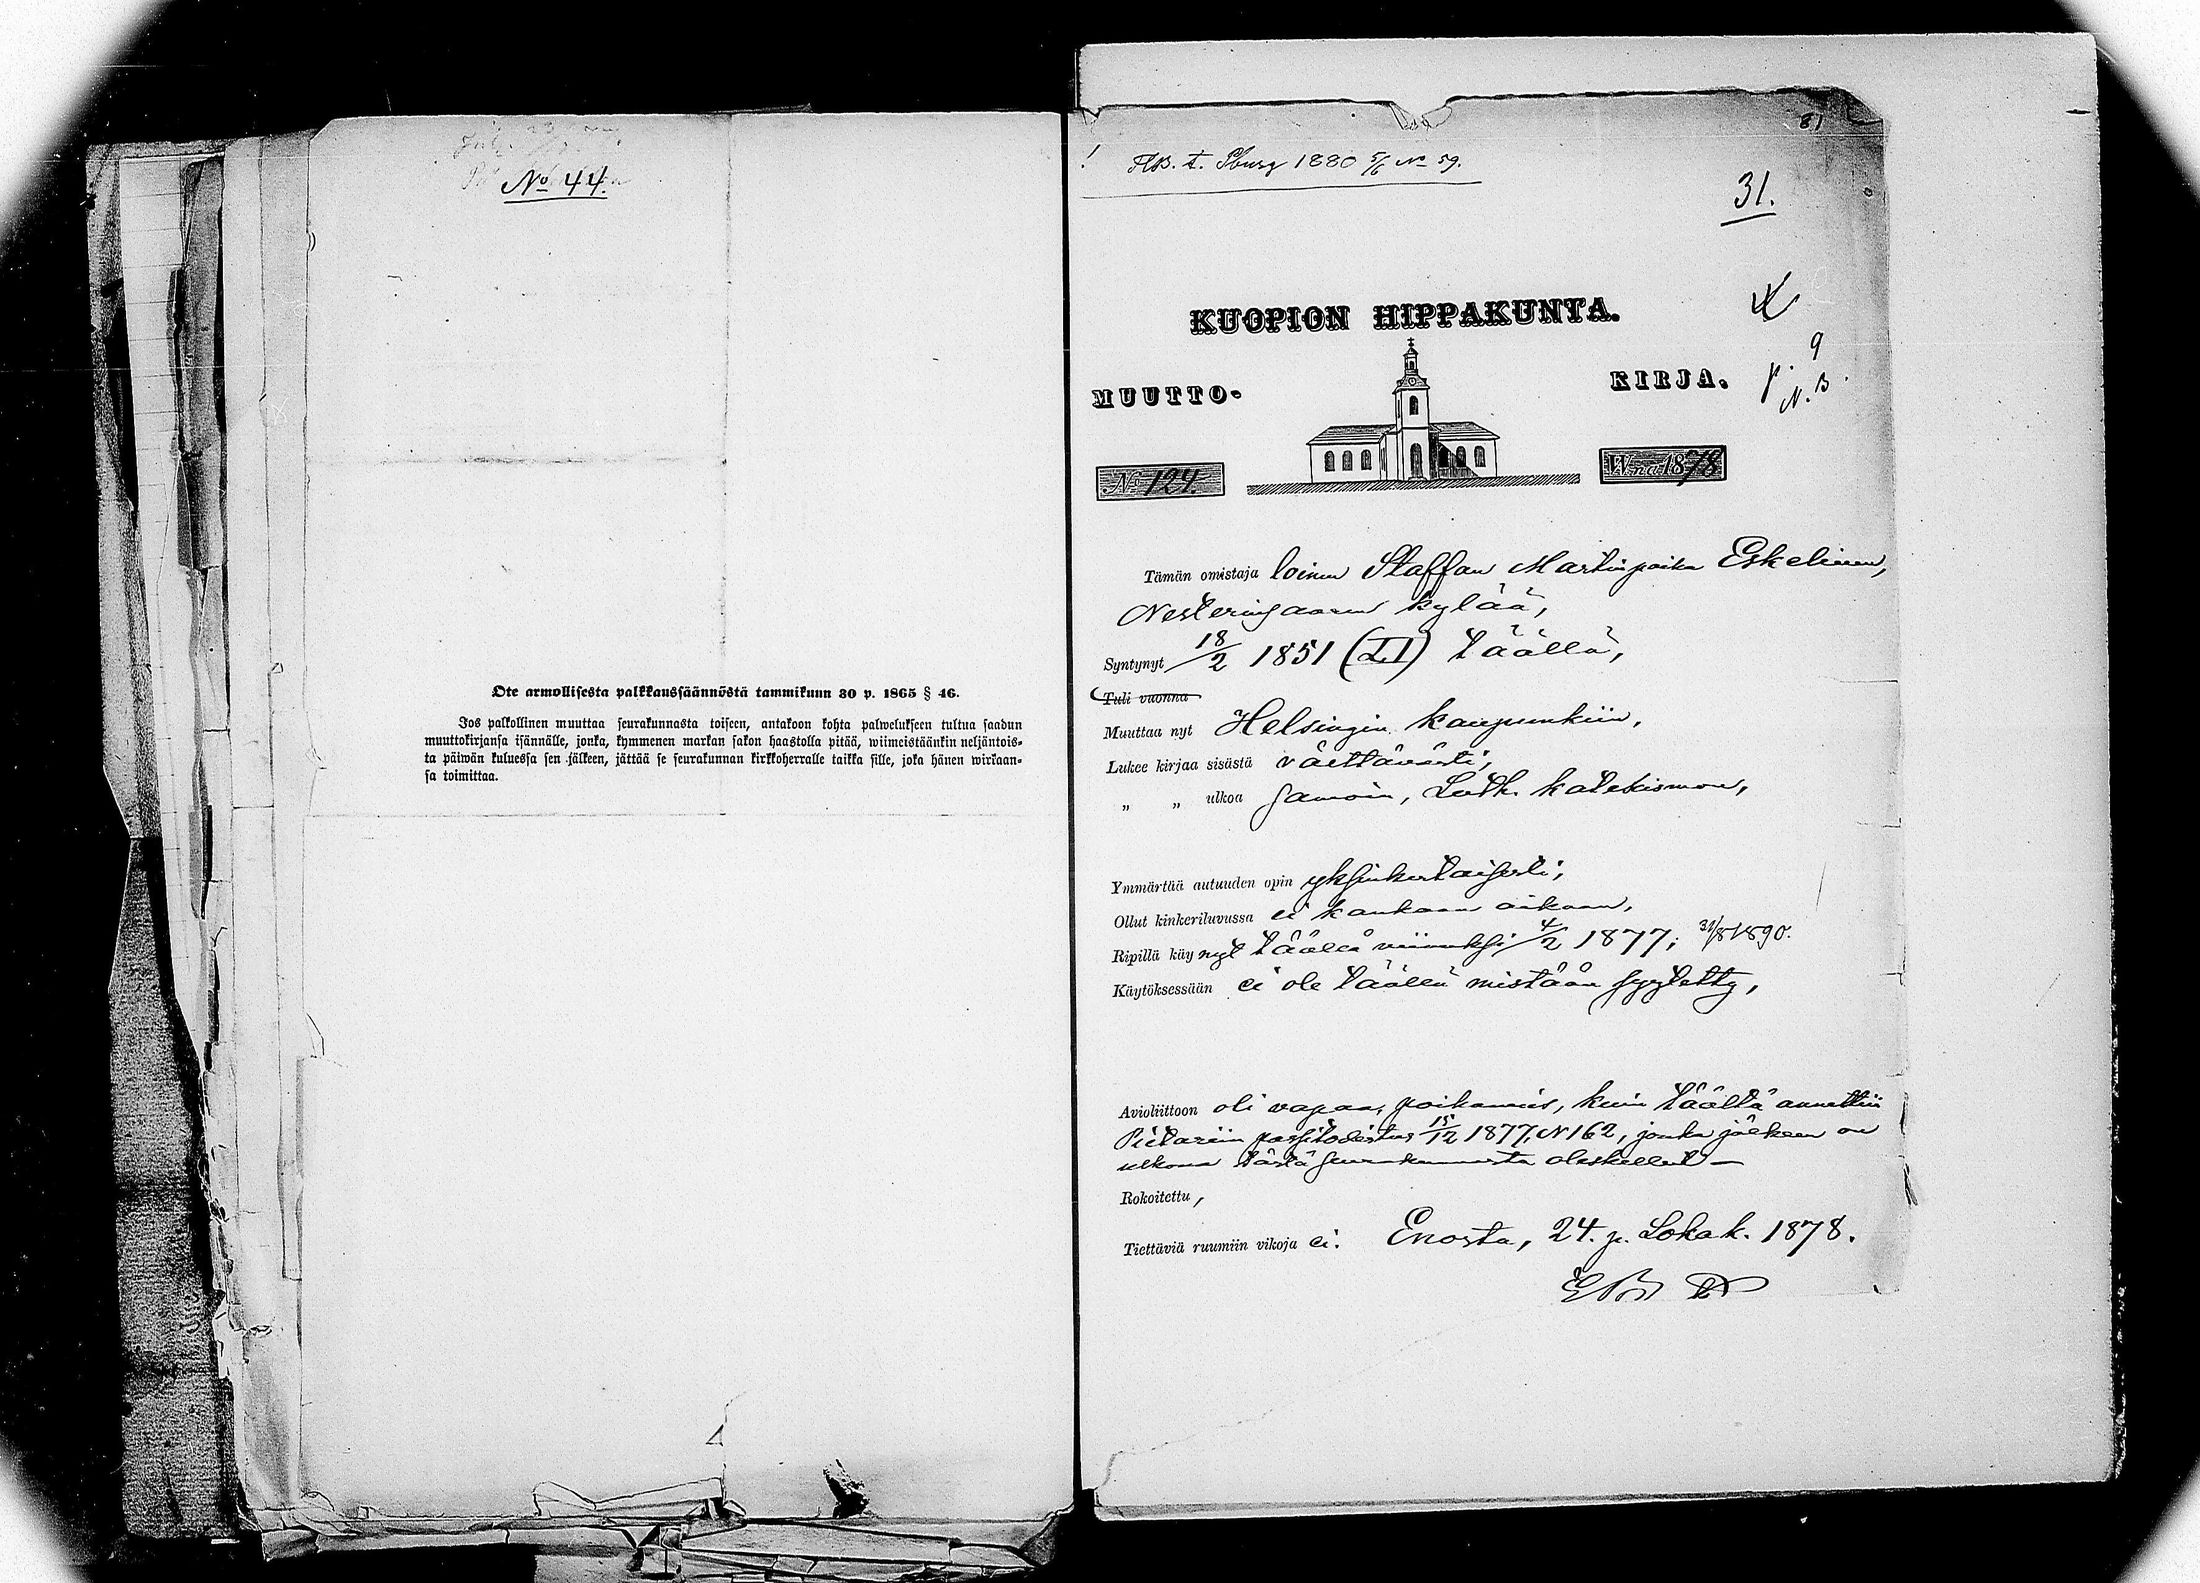 No 44.
Ote armollisesta palkkaussäännöstä tammikuun 30 p. 1865 § 46.
Jos palkollinen muuttaa seurakunnasta toiseen, antakoon kohta palwelukseen tultua saadun
muuttokirjansa isännälle, jonka, kymmenen markan sakon haastolla pitää, wiimeistäänkin neljäntois-
ta päiwän kuluessa sen jälkeen, jättää se seurakunnan kirkkoherralle taikka sille, joka hänen wirkaan-
sa toimittaa.
81
FlB. t. Pburg 1880 5/6 No 59.
31.
KUOPION HIPPAKUNTA.
MUUTTO- KIRJA.
9
p.
N.B.
No 124. W:na 1878
Tämän omistaja loinen Staffan Martinpoika Eskelinen,
kylää,
Syntynyt 18/2 1851 (LI) täällä,
Tuli vuonna
Muuttaa nyt Helsingin kaupunkiin,
Lukee kirjaa sisästä välttävästi,
„ „ ulkoa samoin, Luth. katekismon,
Ymmärtää autuuden opin yksinkertaisesti,
Ollut kinkeriluvussa ei kaukaan aikaan,
Ripillä käynyt täällä viimeksi 4/2 1877; 31/8 1890.
Käytöksessään ei ole täällä mistään syytetty,
Avioliittoon oli vapaa, poikamies, kuin täältä annettiin
Pietariin passitodistus 15/12 1877, N 162, jonka jälkeen on
ulkona tästä seurakunnasta oleskellut –
Rokoitettu,
Tiettäviä ruumiin vikoja ei. Enosta, 24. p. Lokak. 1878.